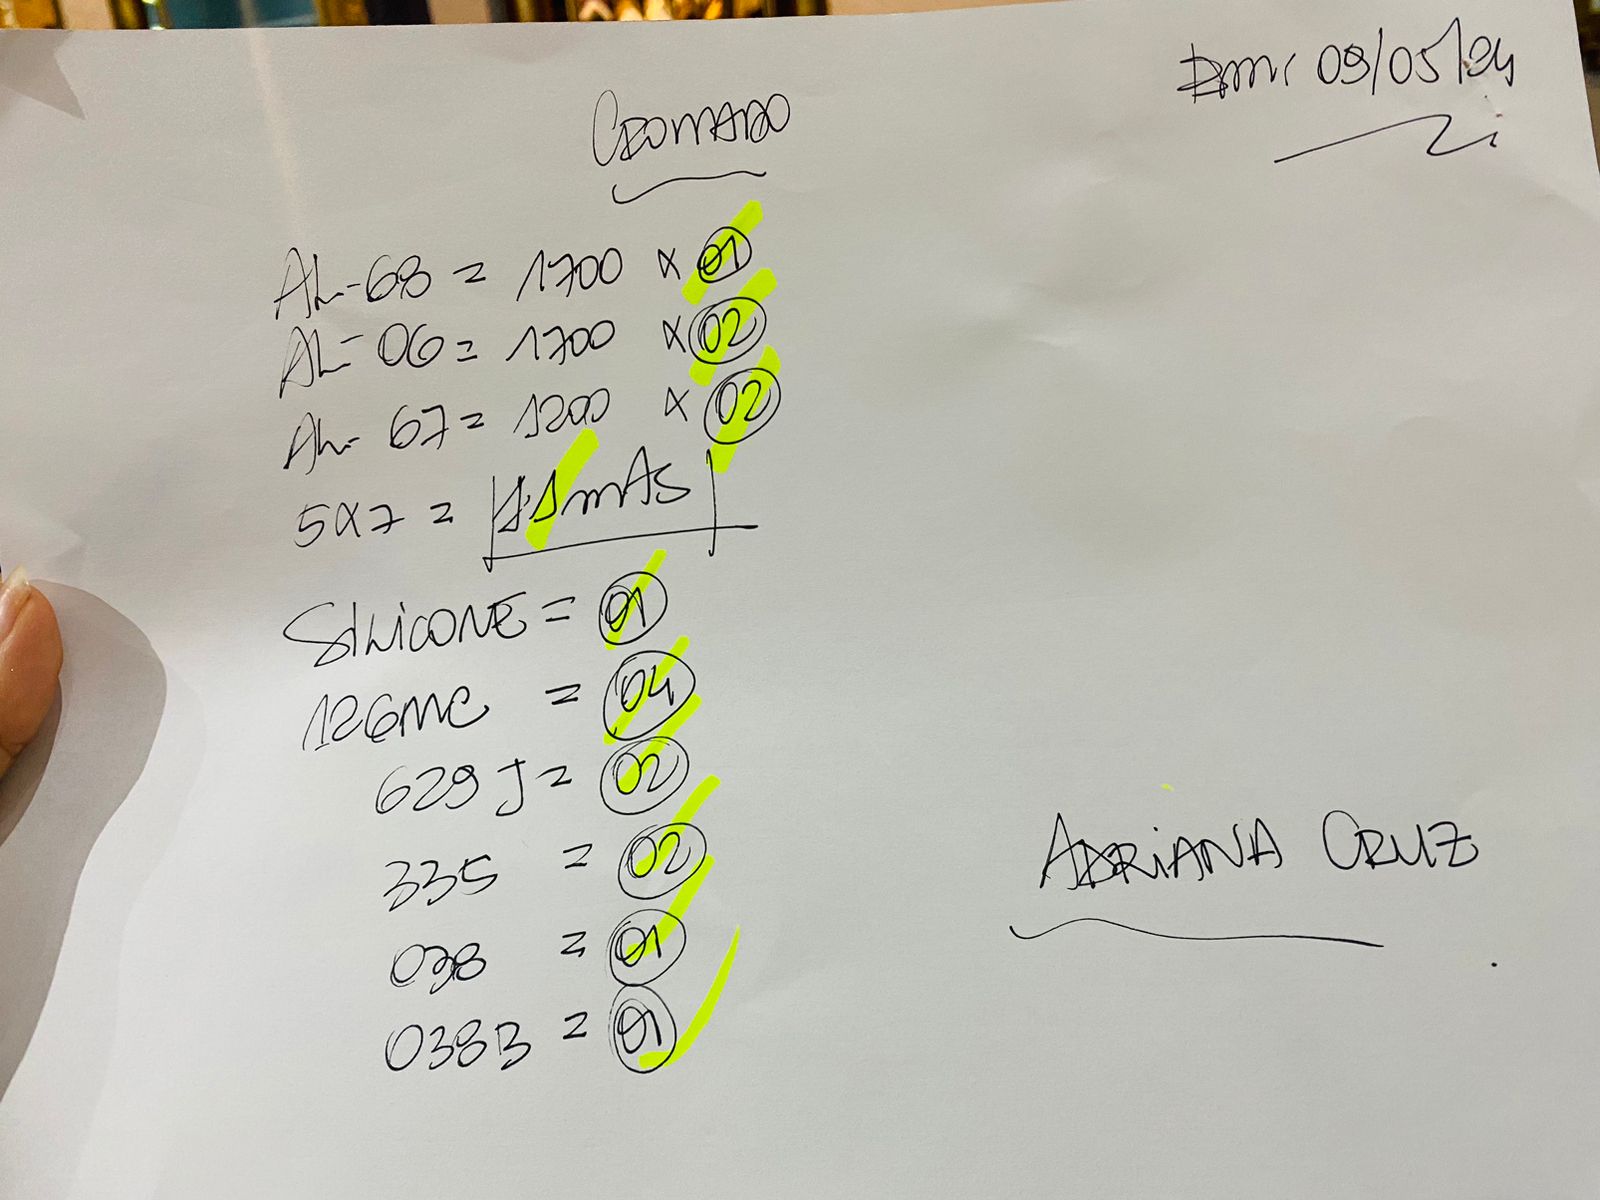 09/05/24
CROMADO
AL-68 = 1700 x 01
AL-06 = 1700 x 02
AL-67 = 1200 x 02
5x7 = mAs
SiLiCONE = 01
126MC = 04
629J = 02
335 = 02
038 = 01
038B = 01
ADRiANA CRUZ